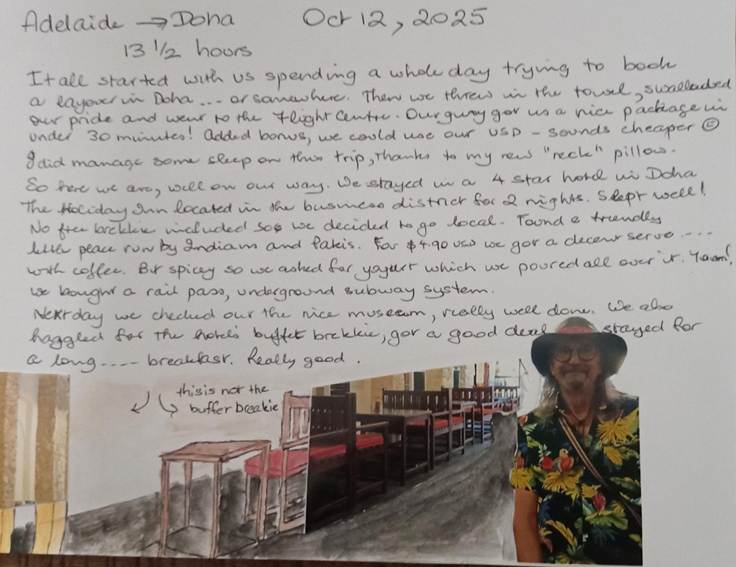 Adelaide → Doha Oct 12, 2025
13 1/2 hours
It all started with us spending a whole day trying to book
a layover in Doha ... or somewhere. Then we threw in the towel, swallowed
our pride and went to the flight Centre. Our guy got us a nice package in
under 30 minutes! Added bonus, we could use our USD - sounds cheaper ☺
I did manage some sleep on this trip, thanks to my new "neck" pillow.
So here we are, well on our way. We stayed in a 4 star hotel in Doha
The Holiday Inn located in the business district for 2 nights. Slept well!
No free brekkie included so we decided to go local. Found a friendly
little place run by Indians and Pakis. For $4.90 USD we got a decent serve ....
with coffee. Bit spicy so we asked for yogurt which we poured all over it. Yum!
We bought a rail pass, underground subway system.
Next day we checked out the nice museum, really well done. We also
haggled for the hotel's buffet brekkie, got a good deal stayed for
a long .... breakfast. Really good.
this is not the
buffer breakie